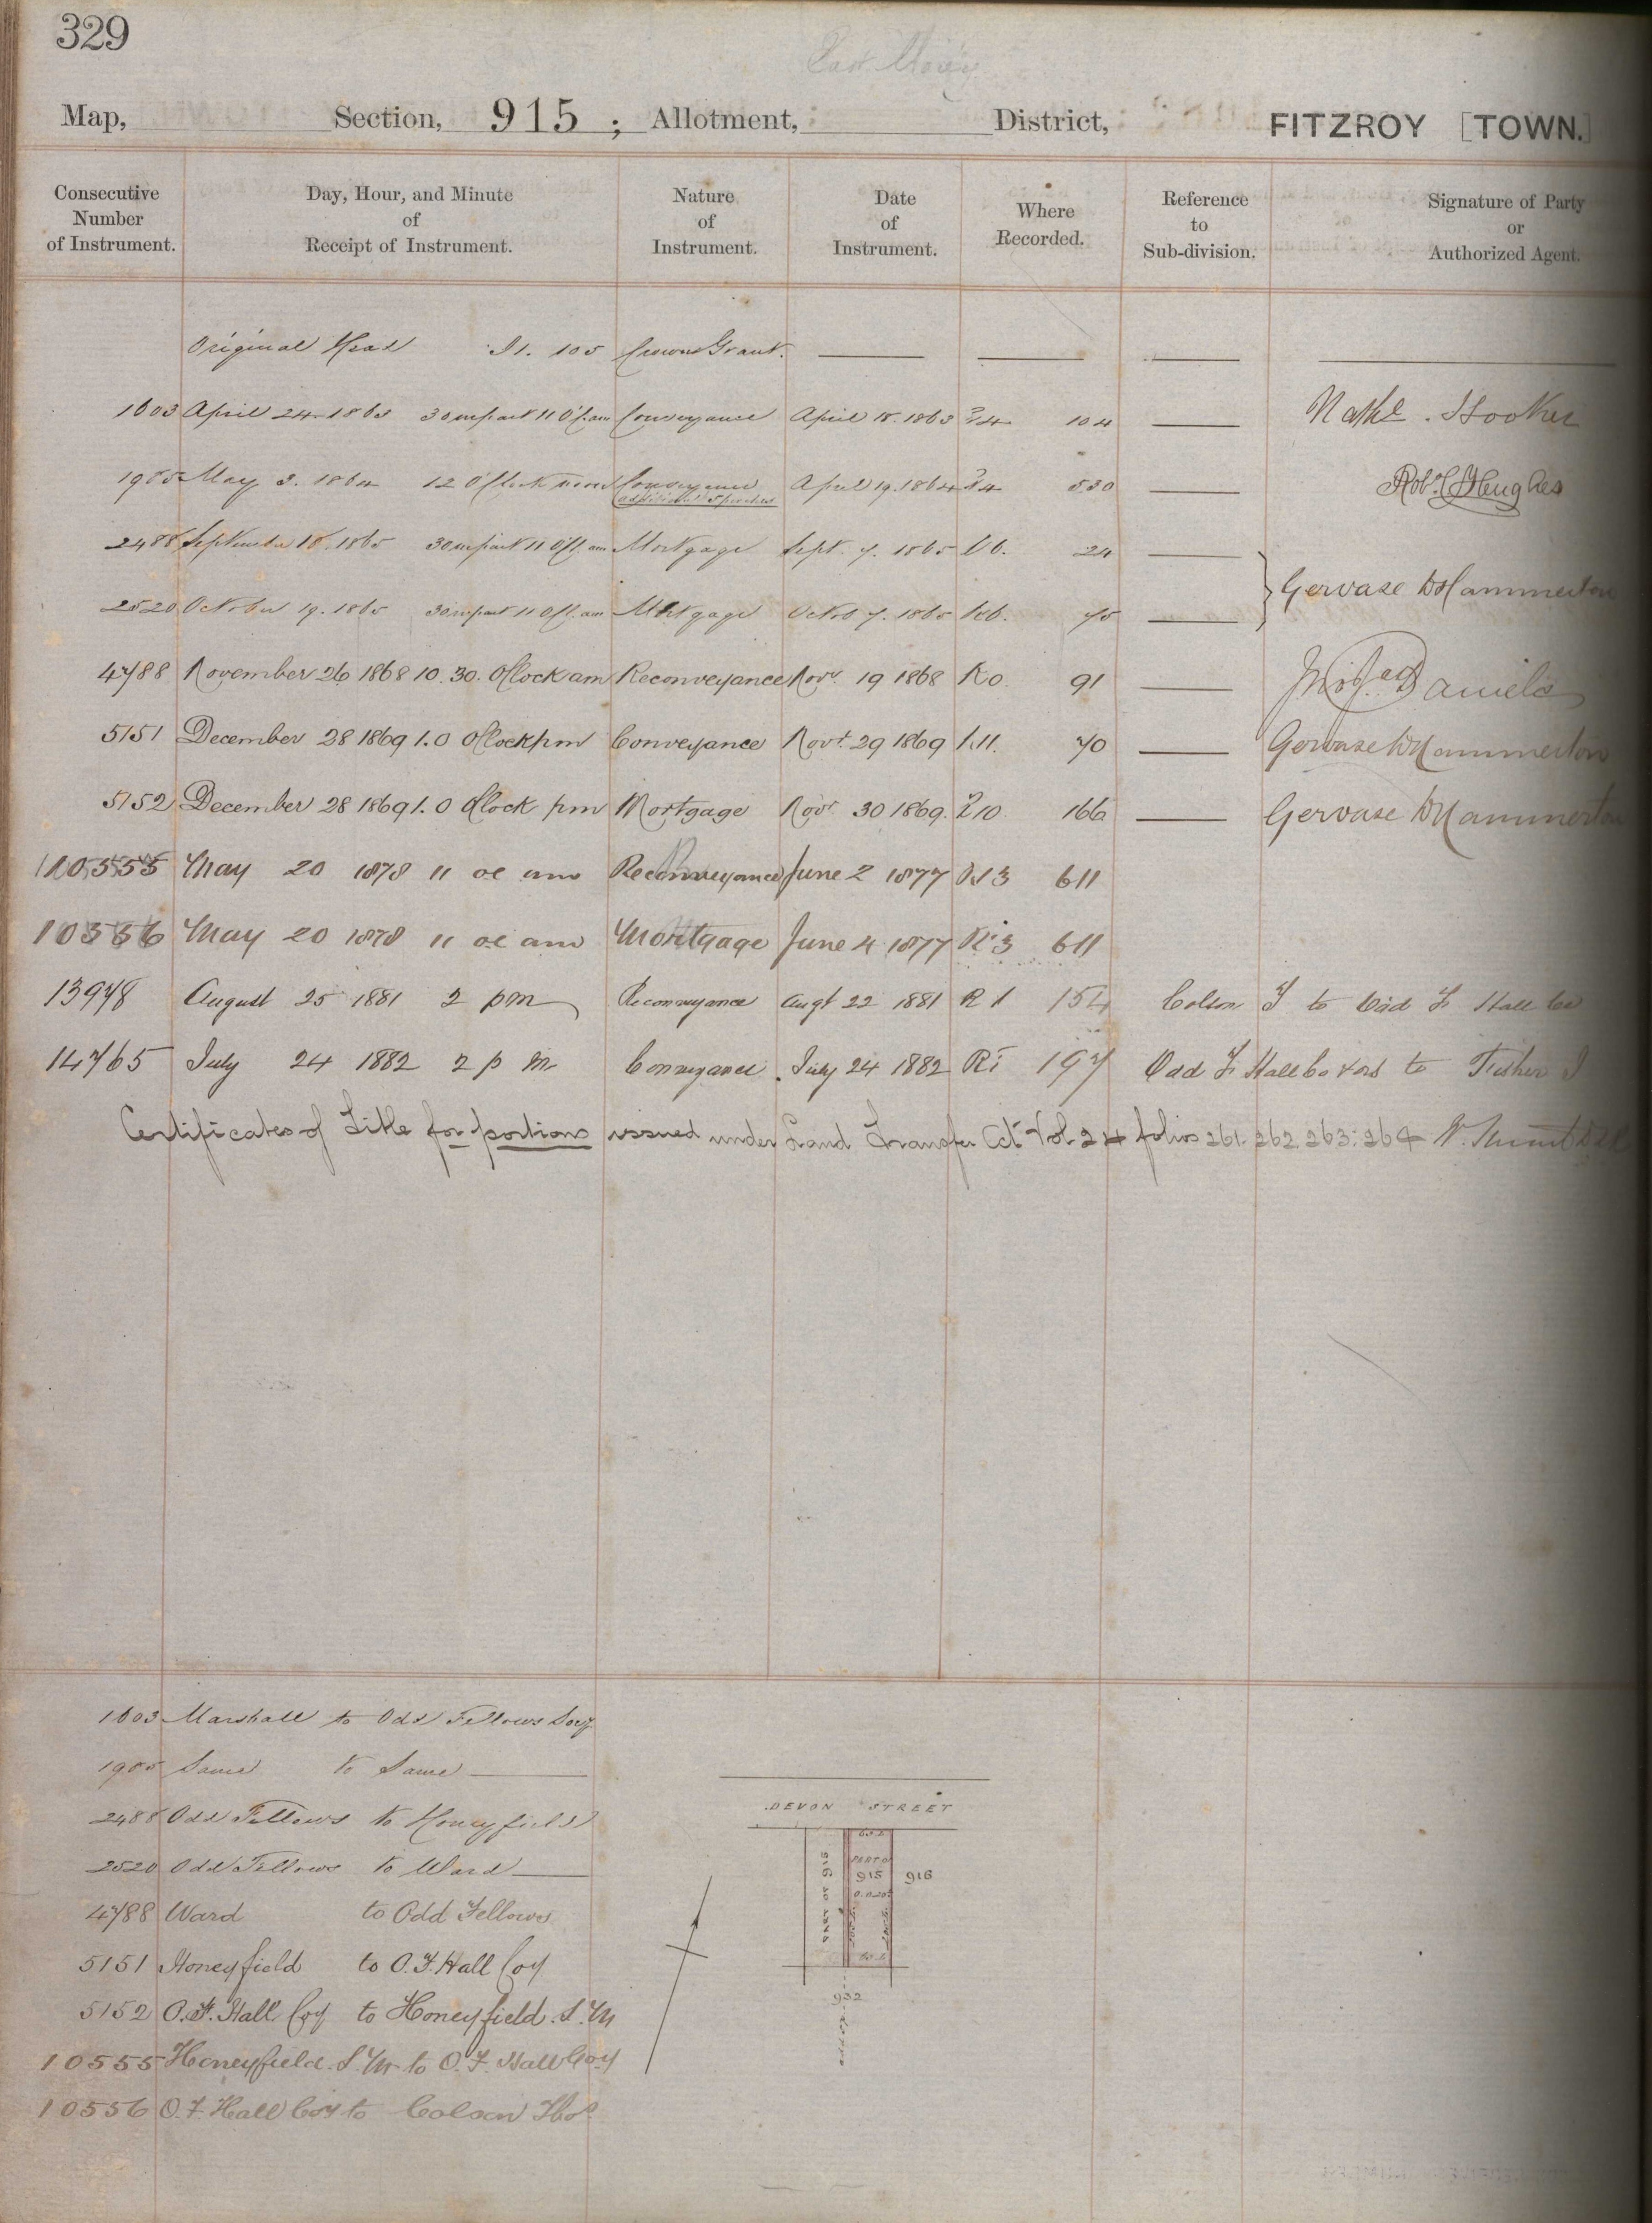 329
Map, Section, 915 ; Allotment, District, FITZROY [TOWN.]
Consecutive Number of Instrument. Day, Hour, and Minute of Receipt of Instrument. Nature of Instrument. Date of Instrument. Where Recorded. Reference to Sub-division. Signature of Party or Authorized Agent.
Original Head 105 Crown Grant.
1603 April 24 1863 30 m past 11 O'C. am Conveyance April 18. 1863 104 Nathl. Hooker
1905 May 3. 1864 12 O'Clock noon Conveyance April 19. 1864 530 Robt. C Hughes
2488 September 18. 1865 30 m past 11 O'Cl. am Mortgage Sept. 7. 1865 24
Gervase D Hammerton
2520 October 19. 1865 30 m past 11 O'Cl. am Mortgage Octob 7. 1865 75
4788 November 26 1868 10.30. O'Clock am Reconveyance Novr. 19 1868 R0. 91 Daniels
5151 December 28 1869 1.0 O'Clock pm Conveyance Novr. 29 1869 R11. 70 Gervase D Hammerton
5152 December 28 1869 1.0 O'Clock pm Mortgage Novr. 30 1869. 10 166 Gervase D Hammerton
10555 May 20 1878 11 oc am Reconveyance June 2 1877 R13 611
10556 May 20 1878 11 oc am Mortgage June 4 1877 R13 611
13978 August 25 1881 2 pm Reconveyance Augt 22 1881 R1 154 Colson T to Odd F Hall Co
14765 July 24 1882 2 p m Conveyance July 24 1882 R1 197 Odd F Hall Co & ors to Fisher J
Certificates of Title for portions issued under Land Transfer Act Vol. 24 folios 261. 262. 263. 264
1603 Marshall to Odd Fellows Socy
1905 Same to Same
2488 Odd Fellows to Honeyfield
2520 Odd Fellows to Ward
4788 Ward to Odd Fellows
5151 Honeyfield to O.F. Hall Coy
5152 O.F. Hall Coy to Honeyfield. S. M
10555 Honeyfield. S. M to O.F. Hall Coy
10556 O.F Hall Coy to Colson Thos
DEVON STREET
PART OF 915
PART OF
915
916
932